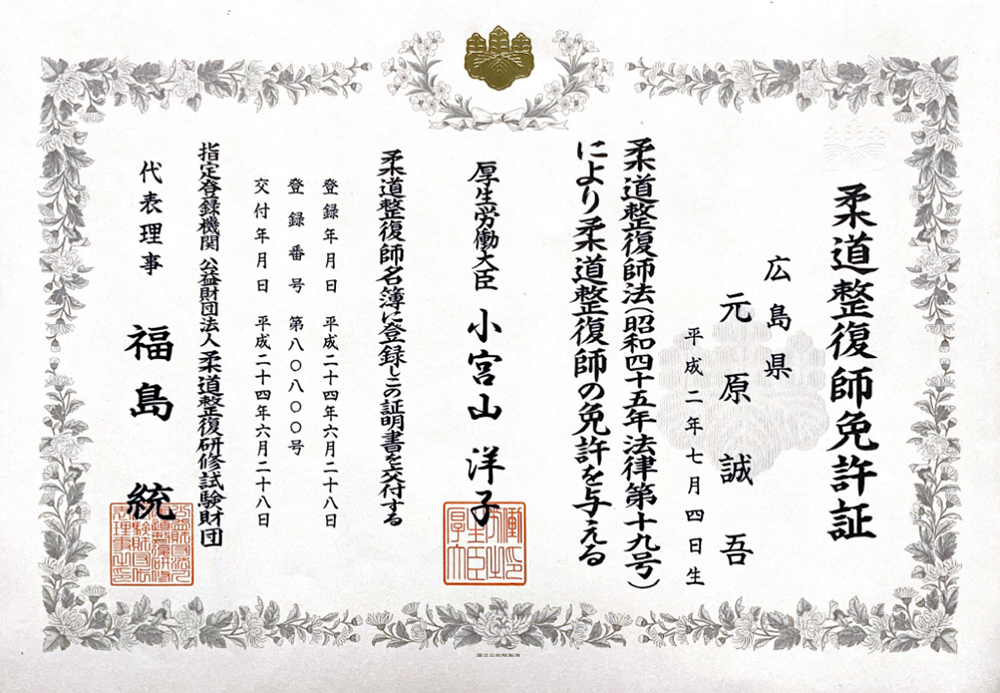 柔道整復師免許証
広島県
元原誠吾
平成二年七月四日生
柔道整復師法(昭和四十五年法律第十九号)
により柔道整復師の免許を与える
厚生労働大臣 小宮山洋子
柔道整復師名簿に登録しこの証明書を交付する
登録年月日 平成二十四年六月二十八日
登録番号 第八〇八〇〇号
交付年月日 平成二十四年六月二十八日
指定登録機関 公益財団法人柔道整復研修試験財団
代表理事 福島統